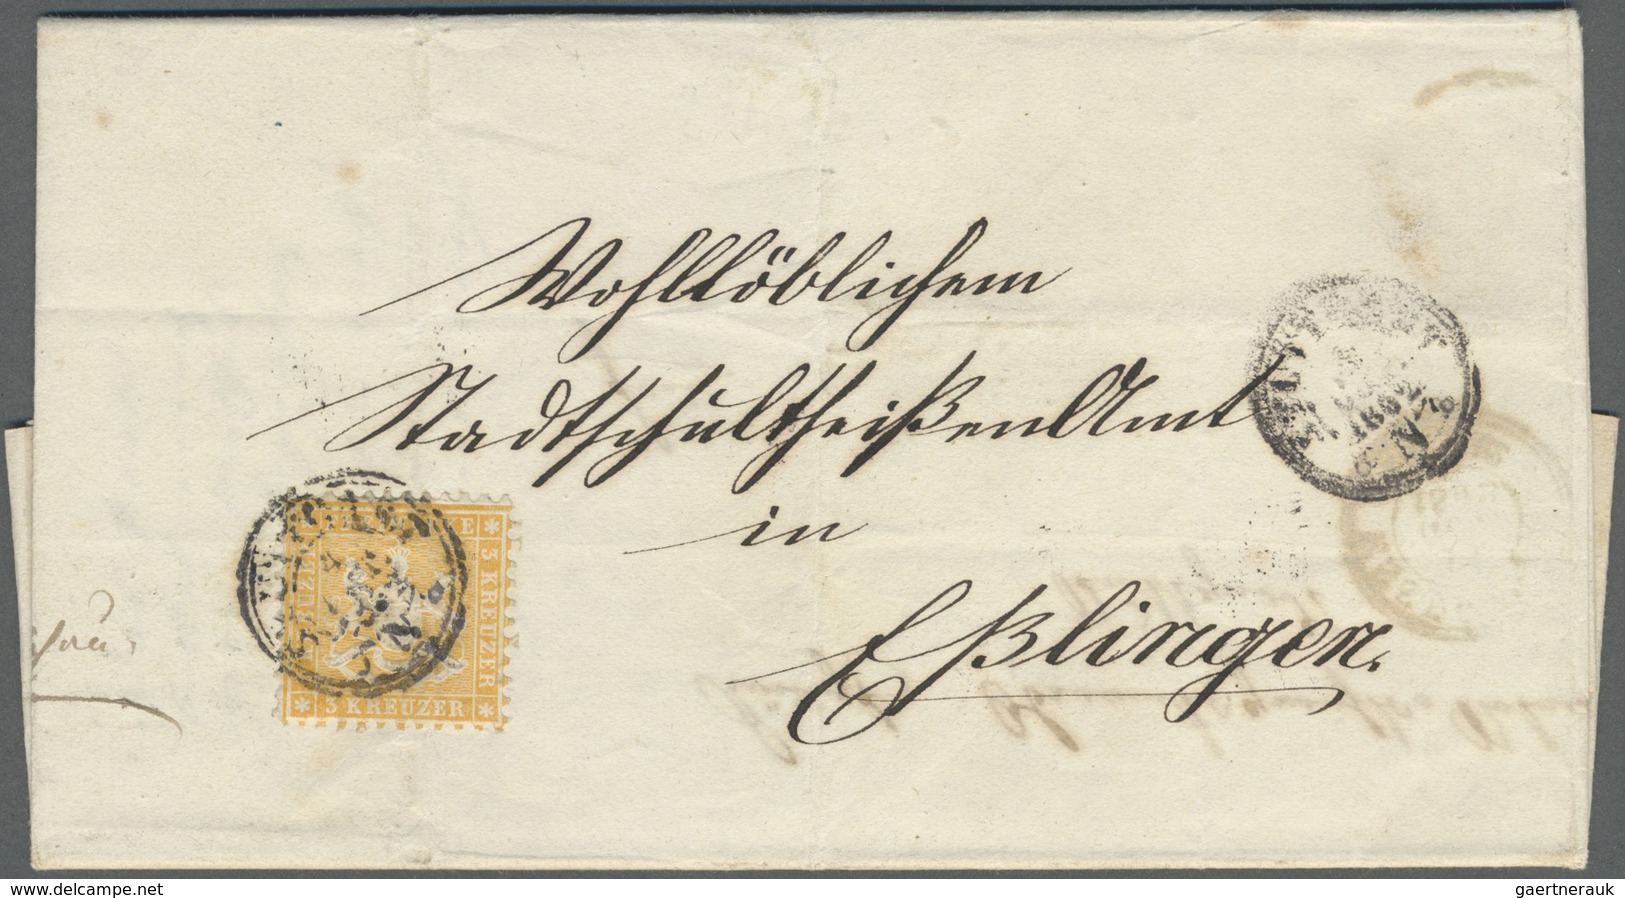 Wohllöblichem
StadtschultheißenAmt
in
Eßlingen.
FREIMARKE
3 KREUZER
3 KREUZER
STUTTGART
1862
www.delcampe.net
gaertnerauk